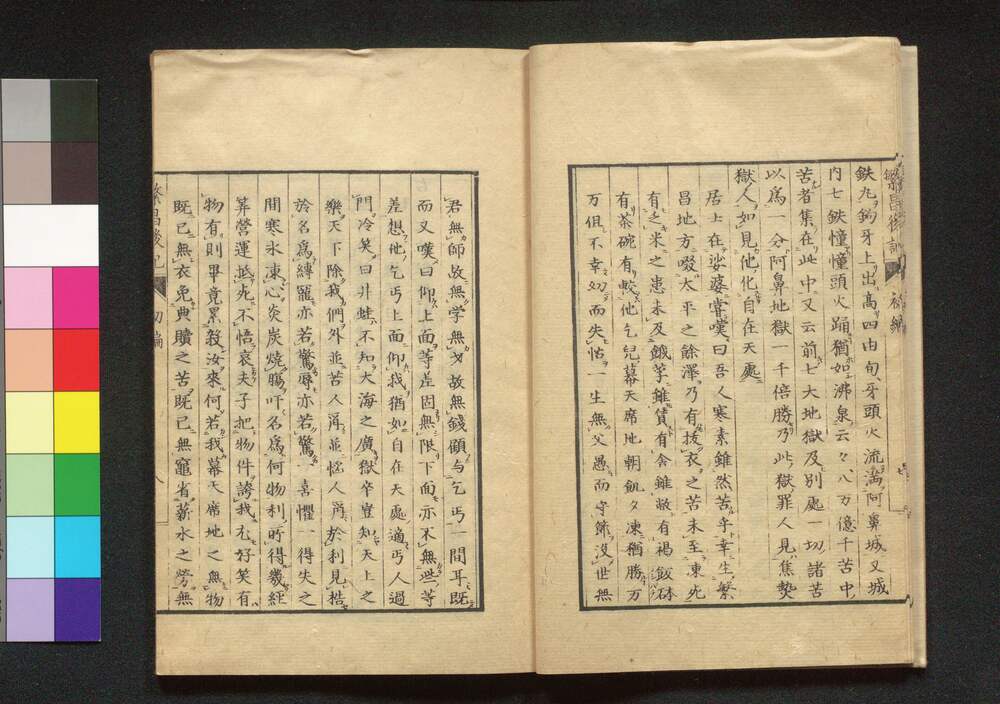 繁昌後記 初編
鉄丸鉤牙上出高四由旬牙頭火流満阿鼻城又城
内七鉄憧憧頭火踊猶如沸泉云々八万億千苦中
苦者集在此中又云前七大地獄及別処一切諸苦
以為一分阿鼻地獄一千倍勝乃此獄罪人見焦熱
獄人如見他化自在天處
居士在娑婆嘗嘆曰吾人寒素雖然苦乎幸生繁
昌地方啜太平之餘澤乃有抜衣之苦未至凍死
有乏米之患未及餓莩雖賃有舎雖敝有褐飯砵
有茶碗有蚊他乞児幕天席地朝飢夕凍猶勝万
万但不幸幼而失怙一生無父愚而守師没世無
君無師故無学無才故無錢顧与乞丐一間耳既
而又嘆曰仰上面等差固無限下面亦不無些等
差想他乞丐上面仰我猶如自在天處適丐人過
門冷笑曰井蛙不知大海之廣獄卒豈知天上之
樂天下除我們外並苦人屑並悩人屑於利見梏
於名為縛寵亦若驚辱亦若驚一喜懼一得失之
間寒氷凍心炎炭燒腸吓名為何物利所得幾經
筭營運抵死不悟哀夫子把物件誇我尤好笑有
物有則畢竟累殺汝來何若我幕天席地之無物
既已無衣免典贖之苦既已無竈省薪水之勞無
繁昌後記 初編 八